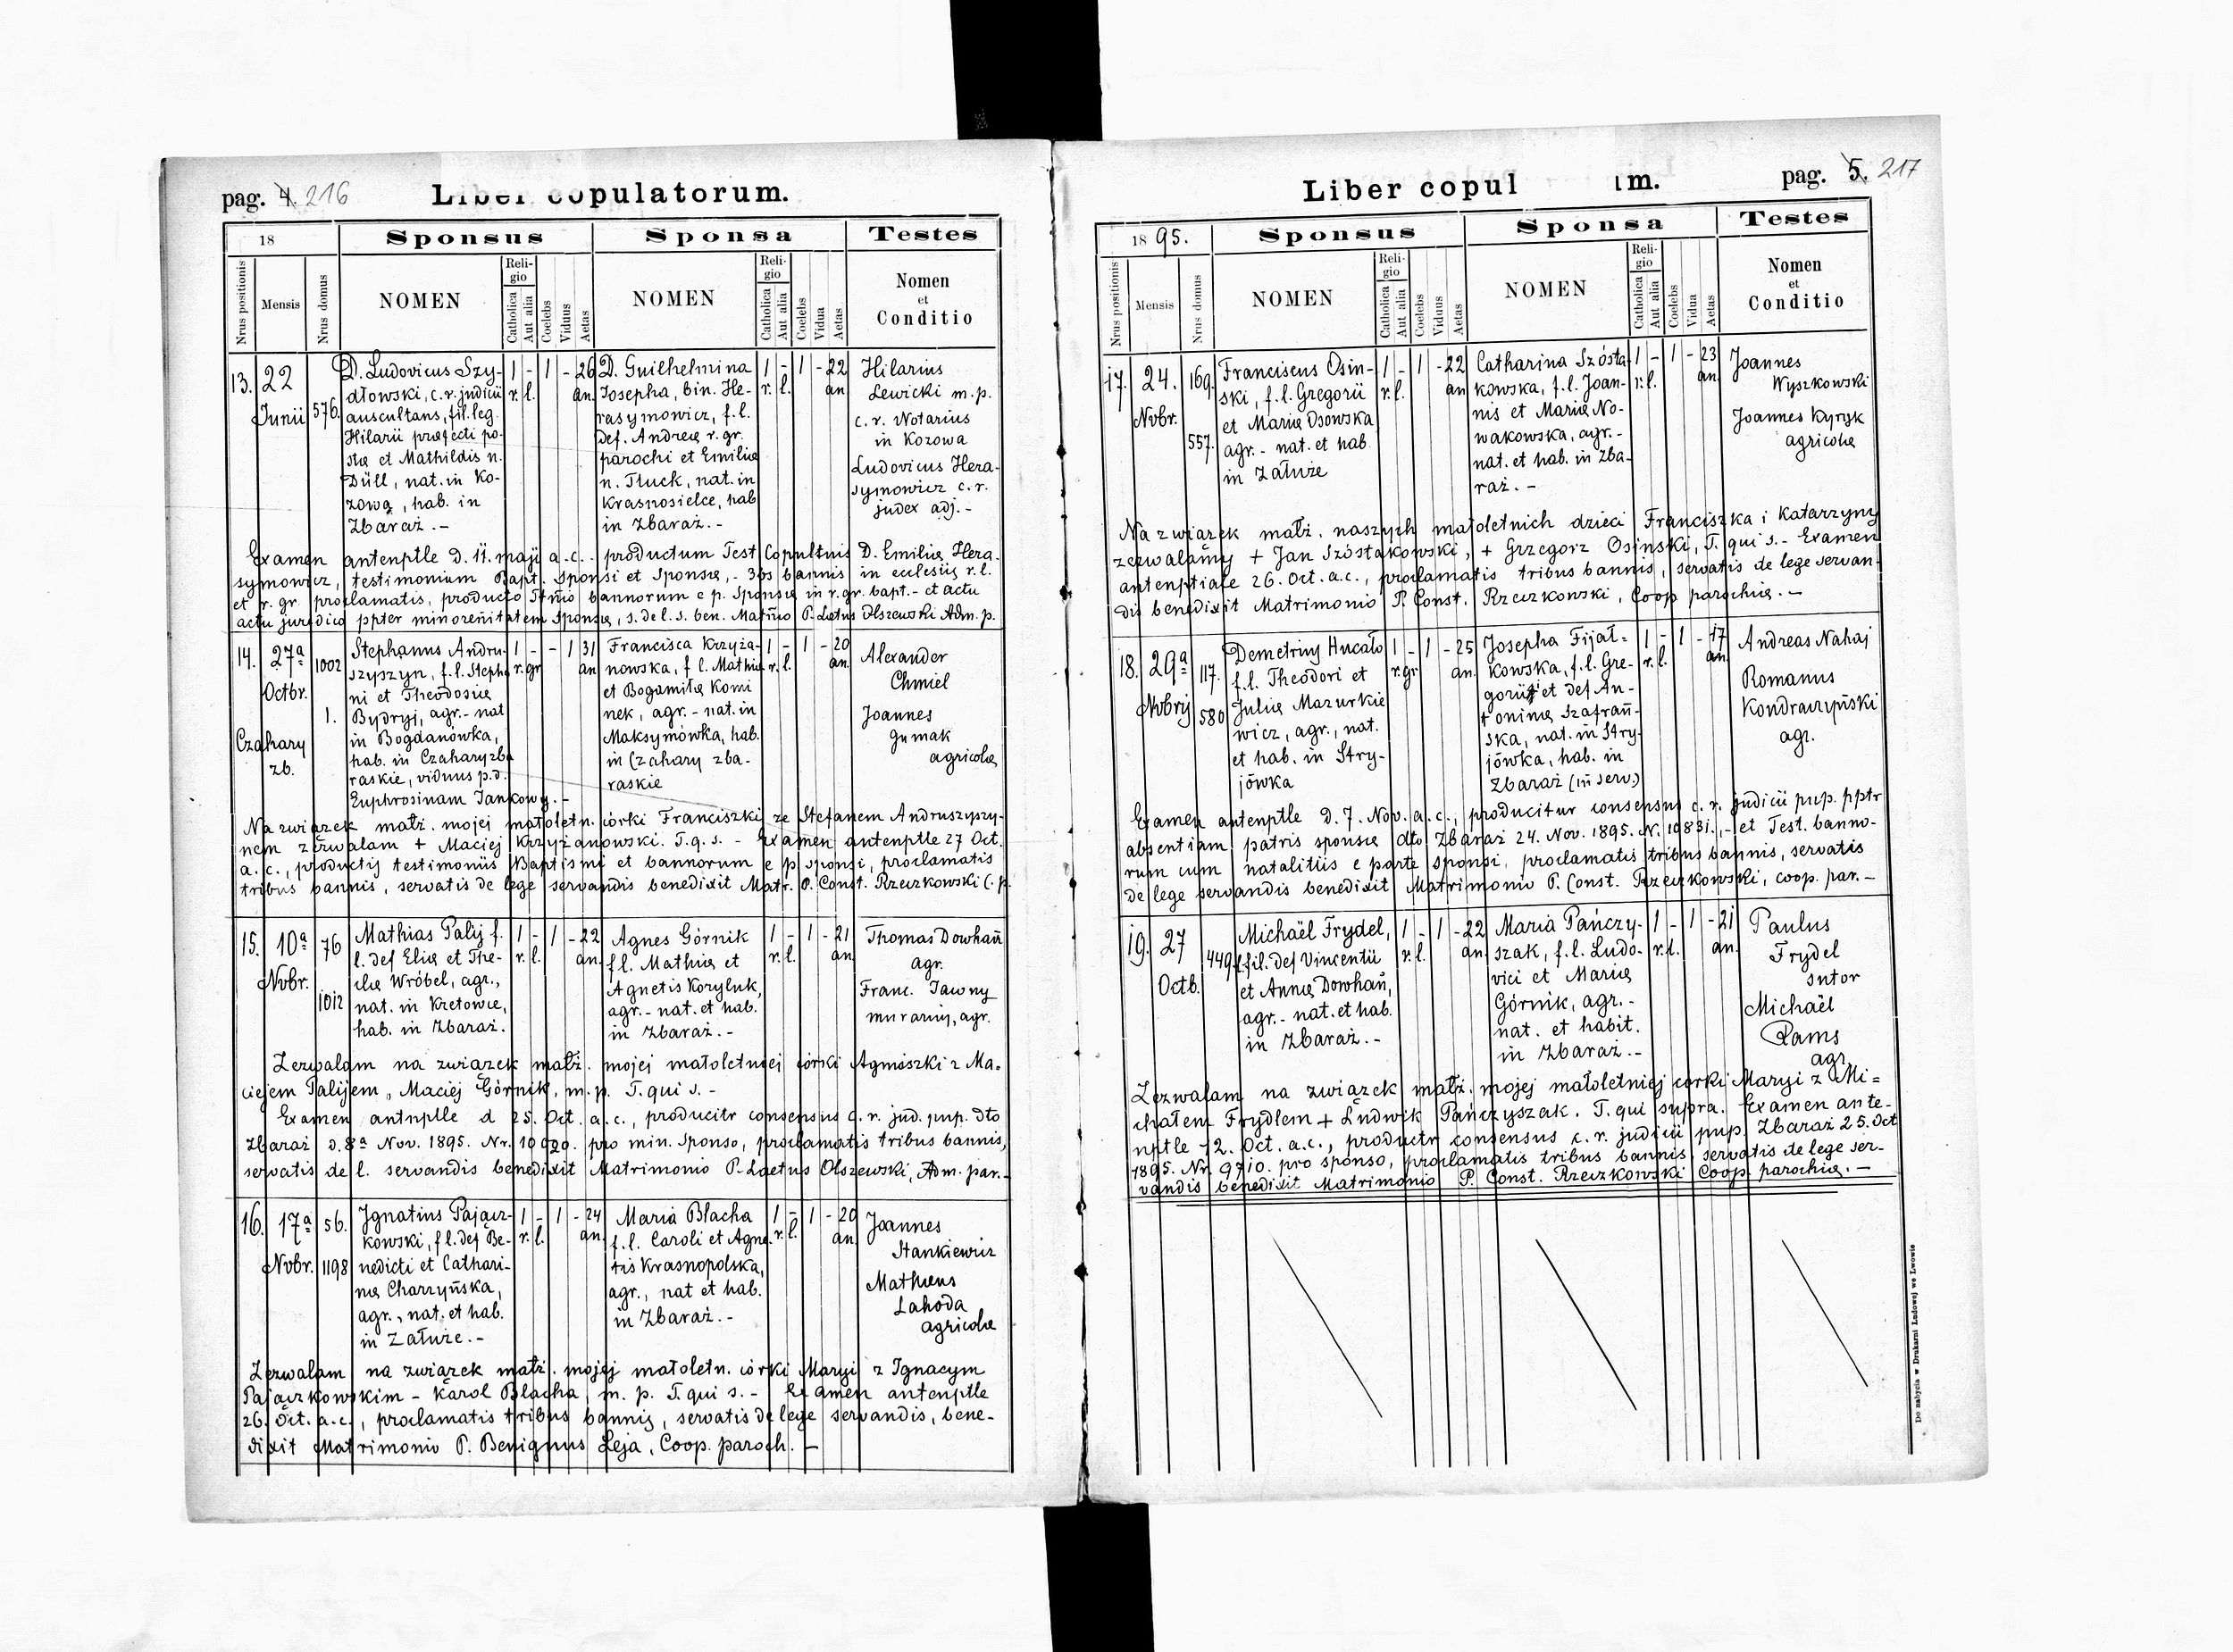 pag. 4. 216
Liber copulatorum.
18
Sponsus
Sponsa
Testes
Nrus positionis
Mensis
Nrus domus
NOMEN
Religio
Catholica
Aut alia
Coelebs
Viduus
Aetas
NOMEN
Religio
Catholica
Aut alia
Coelebs
Vidua
Aetas
Nomen
et
Conditio
13. 22
Junii
576.
D. Ludovicus Szy-
dłowski, c.r. judicii
auscultans, fil. leg.
Hilarii præfecti po-
stæ et Mathildis n.
Düll, nat. in Ko-
zowa, hab. in
Zbaraż. -
1 - 1 - 26
r. l. an.
D. Guilhelmina
Josepha, bin. He-
rasymowicz, f. l.
def. Andreæ r. gr.
parochi et Emiliæ
n. Tluck, nat. in
Krasnosielce, hab
in Zbaraż. -
1 - 1 - 22
r. l. an
Hilarius
Lewicki m. p.
c. r. Notarius
in Kozowa
Ludovicus Hera-
symowicz c. r.
judex adj. -
Examen antenptle d. 11. maji a. c. productum Test Copultnis D. Emiliæ Hera-
symowicz, testimonium Bapt. Sponsi et Sponsæ, - 3bs bannis in ecclesiis r. l.
et r. gr proclamatis, producto Ttmio bannorum e p. Sponsæ in r. gr. bapt. - et actu
actu juridico ppter minorenitatem Sponsæ, s. de l. s. ben. Matrmio P. Lætus Olszewski Adm. p.
14. 27ª
Octbr.
Czahary
zb.
1002
1.
Stephanus Andru-
szyszyn, f. l. Stepha
ni et Theodosiæ
Bydryj, agr. - nat
in Bogdanówka,
hab. in Czahary zba
raskie, viduus p. d.
Euphrosinam Jankowy. -
1 - - 1 31
r. gr an
Francisca Krzyża-
nowska, f l. Mathiæ
et Bogamiłæ Komi
nek, agr. - nat. in
Maksymówka, hab.
in Czahary zba-
raskie
1 - 1 - 20
r. l. an.
Alexander
Chmiel
Joannes
Gumak
agricolæ
Na związek małż. mojej małoletn. córki Franciszki ze Stefanem Andruszyszy-
nem zezwalam + Maciej Krzyżanowski. T. q. s. - Examen antenptle 27 Oct.
a. c., productis testimoniis Baptismi et bannorum e p sponsi, proclamatis
tribus bannis, servatis de lege servandis benedixit Matr. P. Const. Rzeczkowski C. p.
15. 10ª
Nvbr.
76
1012
Mathias Palij f.
l. def Eliæ et The-
clæ Wróbel, agr.,
nat. in Kretowce,
hab. in Zbaraż.
1 - 1 - 22
r. l. an.
Agnes Górnik
f l. Mathiæ et
Agnetis Koryluk,
agr. - nat. et hab.
in Zbaraż. -
1 - 1 - 21
r. l. an.
Thomas Dowhań
agr.
Franc. Jawny
murarius, agr.
Zezwalam na związek małż. mojej małoletniej córki Agnieszki z Ma-
ciejem Palijem, Maciej Górnik, m. p. T. qui s. -
Examen antnptle d 25. Oct. a. c., producitr consensus c. r. jud. pup. dto
Zbaraż d. 8ª Nov. 1895. Nr. 10090. pro min. Sponso, proclamatis tribus bannis,
servatis de l. servandis benedixit Matrimonio P. Laetus Olszewski, Adm. par. -
16. 17ª
Nvbr.
56.
1198
Ignatius Pającz-
kowski, f l. def Be-
nedicti et Cathari-
næ Charzyńska,
agr., nat. et hab.
in Załuże. -
1 - 1 - 24
r. l. an.
Maria Blacha
f. l. Caroli et Agne-
tis Krasnopolska,
agr., nat et hab.
in Zbaraż. -
1 - 1 - 20
r. l. an
Joannes
Stankiewicz
Mathæus
Lahoda
agricolæ
Zezwalam na związek małż. mojej małoletn. córki Maryi z Ignacym
Pajaczkowskim - Karol Blacha, m. p. T. qui s. - Examen antenptle
26. Oct. a. c., proclamatis tribus bannis, servatis de lege servandis, bene-
dixit Matrimonio P. Benignus Leja, Coop. paroch. -
Liber copul m.
pag. 5. 217
18 95.
Sponsus
Sponsa
Testes
Nrus positionis
Mensis
Nrus domus
NOMEN
Religio
Catholica
Aut alia
Coelebs
Viduus
Aetas
NOMEN
Religio
Catholica
Aut alia
Coelebs
Vidua
Aetas
Nomen
et
Conditio
17. 24.
Nvbr.
169.
557.
Franciscus Osin-
ski, f. l. Gregorii
et Mariæ Osowska
agr. - nat. et hab
in Załuże
1 - 1 - 22
r. l. an
Catharina Szósta-
kowska, f. l. Joan-
nis et Mariæ No-
wakowska, agr. -
nat. et hab. in Zba-
raż. -
1 - 1 - 23
r. l. an
Joannes
Wyszkowski
Joannes Kyryk
agricolæ
Na związek małż. naszych małoletnich dzieci Franciszka i Katarzyny
zezwalamy + Jan Szóstakowski, + Grzegorz Osinski, T. qui s. - Examen
antenptiale 26. Oct. a. c., proclamatis tribus bannis, servatis de lege servan-
dis benedixit Matrimonio P. Const. Rzeczkowski, Coop parochiæ. -
18. 29ª
Nvbris
117.
580
Demetrius Hucało
f. l. Theodori et
Juliæ Mazurkie
wicz, agr., nat.
et hab. in Stry-
jówka
1 - 1 - 25
r. gr an.
Josepha Fijał-
kowska, f. l. Gre-
gorii et def An-
toninæ Szafrań-
ska, nat. in Stry-
jówka, hab. in
Zbaraż (in serv.)
1 - 1 - 17
r. l. an.
Andreas Nahaj
Romanus
Kondraczyński
agr.
Examen antenptle d. 7. Nov. a. c., producitur consensus c. r. judicii pup. pptr
absentiam patris sponsæ dto Zbaraż 24. Nov. 1895. N. 10831., - et Test. banno-
rum cum natalitiis e parte sponsi, proclamatis tribus bannis, servatis
de lege servandis benedixit Matrimonio P. Const. Rzeczkowski, coop. par. -
19. 27
Octb.
449
Michaël Frydel,
fil. def Vincentii
et Annæ Dowhań,
agr. - nat. et hab.
in Zbaraż. -
1 - 1 - 22
r. l. an.
Maria Pańczy-
szak, f. l. Ludo-
vici et Mariæ
Górnik, agr. -
nat. et habit.
in Zbaraż. -
1 - 1 - 21
r. l. an.
Paulus
Frydel
sutor
Michaël
Rams
agr.
Zezwalam na związek małż. mojej małoletniej córki Maryi z Mi-
chałem Frydlem + Ludwik Pańczyszak. T. qui supra. Examen ante-
nptle 12. Oct. a. c., productr consensus c. r. judicii pup. Zbaraż 25. Oct
1895. Nr. 9710. pro sponso, proclamatis tribus bannis servatis de lege ser-
vandis benedixit Matrimonio P. Const. Rzeczkowski Coop. parochiæ. -
Do nabycia w Drukarni Ludowej we Lwowie